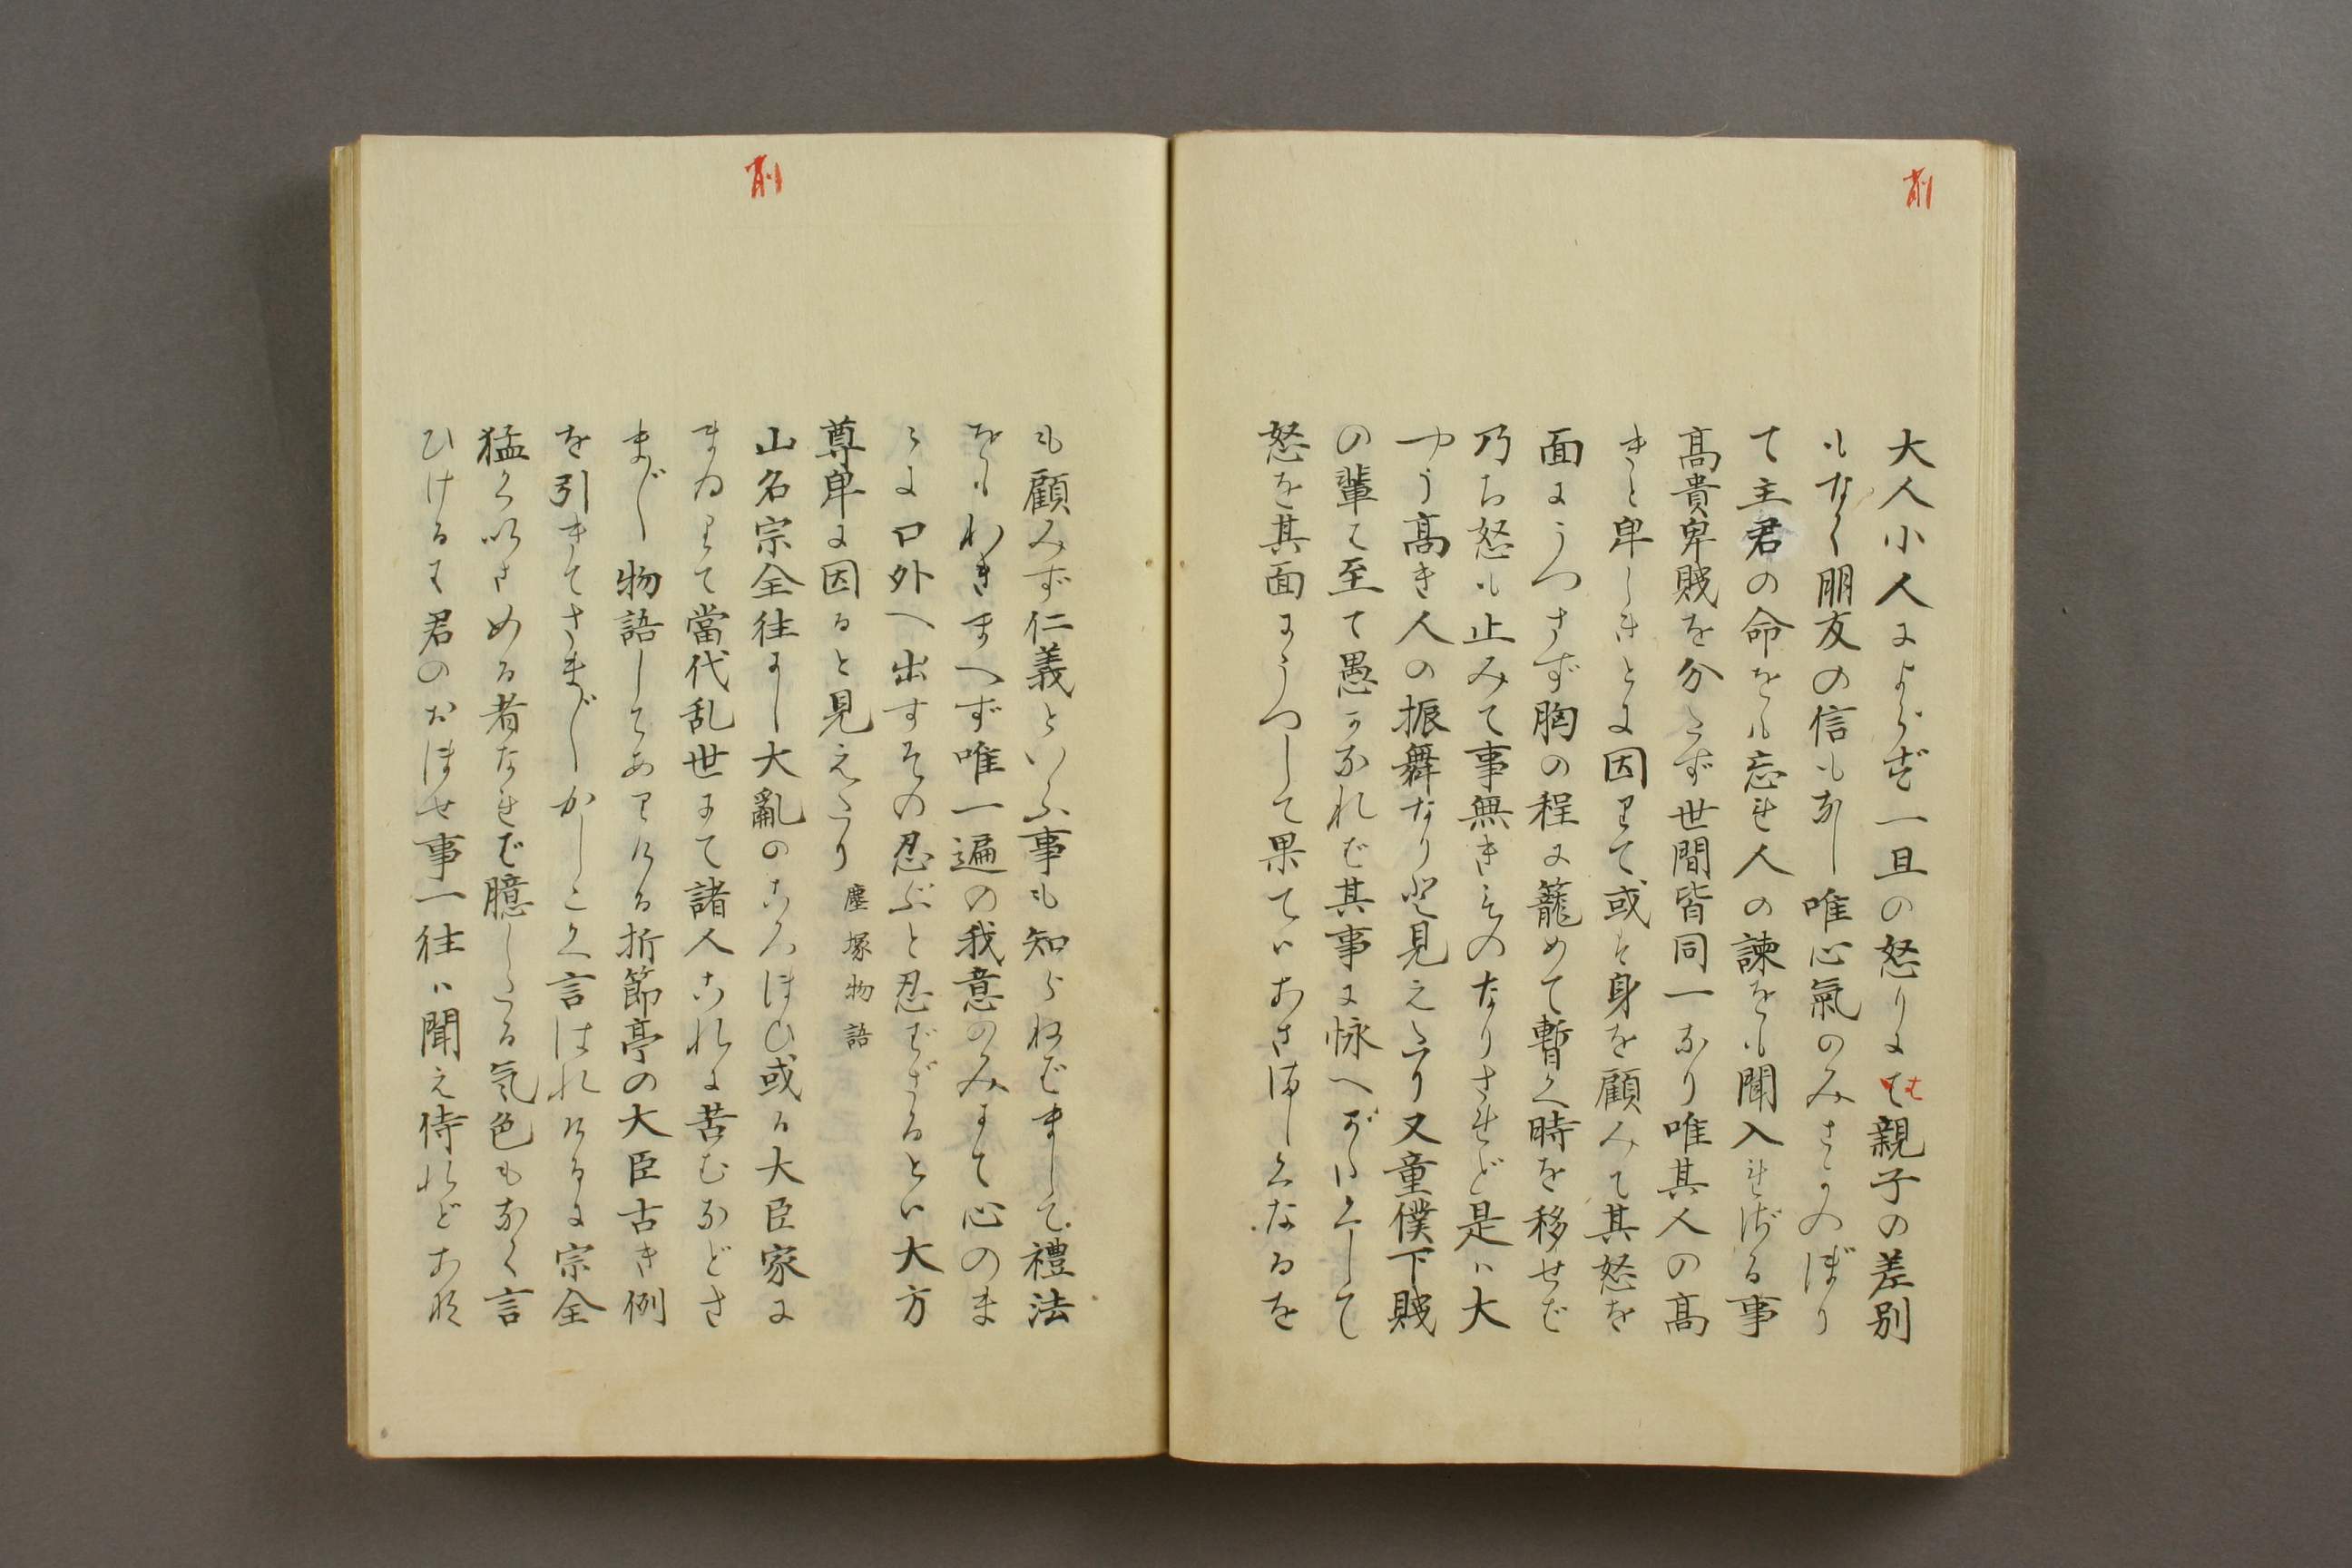 削
大人小人によらず一旦の怒りには親子の差別
は
もなく朋友の信もなし唯心氣のみさかのぼり
て主君の命をも忘れ人の諫をも聞入れざる事
髙貴卑賤を分たず世間皆同一なり唯其人の髙
きと卑しきとに因りて或は身を顧みて其怒を
面にうつさず胸の程に籠めて暫く時を移せば
乃ち怒も止みて事無きものなりされど是ハ大
やう髙き人の振舞なりと見えたり又童僕下賤
の輩は至て愚かなれば其事に怺へがたくして
怒を其面にうつして果てハあさましくなるを
も顧みず仁義といふ事も知らねばまして禮法
をもわきまへず唯一遍の我意のみにて心のま
ゝに口外へ出すその忍ぶと忍ばざるとハ大方
尊卑に因ると見えたり 塵塚物語
削
山名宗全往にし大亂のころほひ或る大臣家に
まゐりて當代乱世にて諸人これに苦むなどさ
まざま物語してありける折節亭の大臣古き例
を引きてさまざまかしこく言はれけるに宗全
猛くいさめる者なれば臆したる気色もなく言
ひけるは君のおほせ事一往ハ聞え侍れどあな